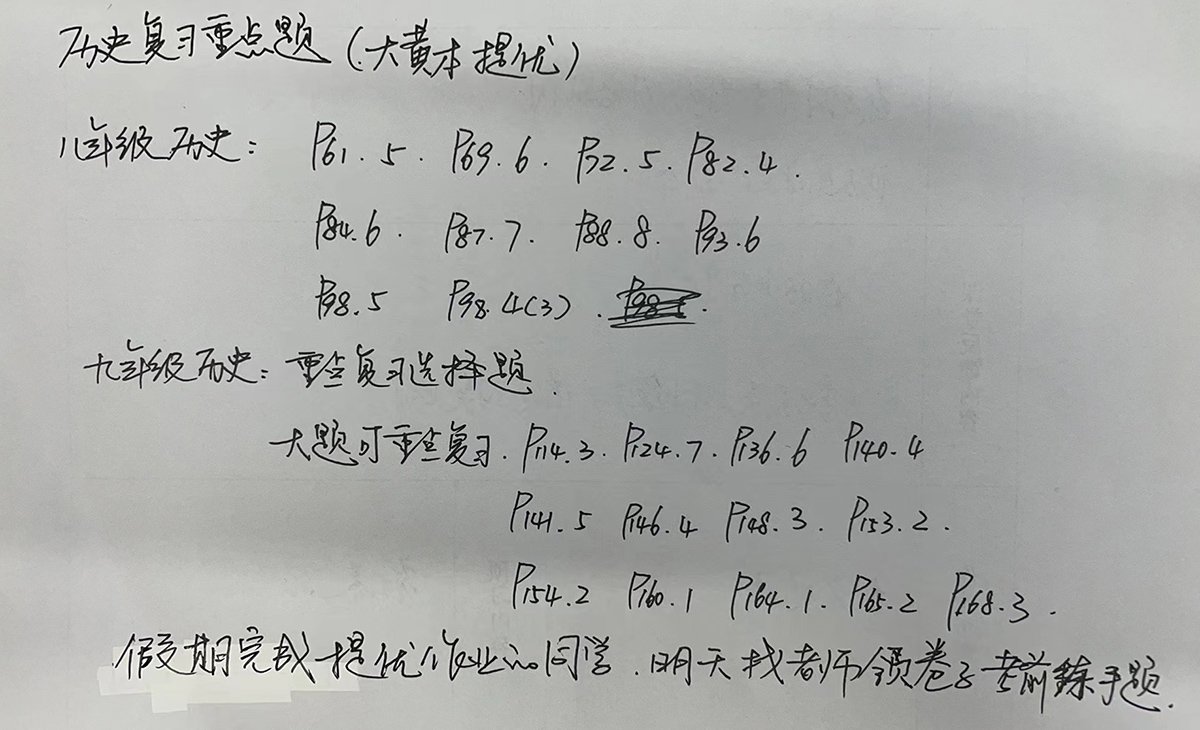 历史复习重点题(大黄本提优)
八年级历史: P61.5. P69.6. P72.5. P82.4.
P84.6. P87.7. P88.8. P93.6
P98.5 P98.4(3).
九年级历史: 重点复习选择题.
大题可重点复习. P114.3. P124.7. P136.6 P140.4
P141.5 P146.4 P148.3. P153.2.
P154.2 P160.1 P164.1. P165.2 P168.3.
假期完成提优作业的同学.明天找老师领卷子考前練手题.